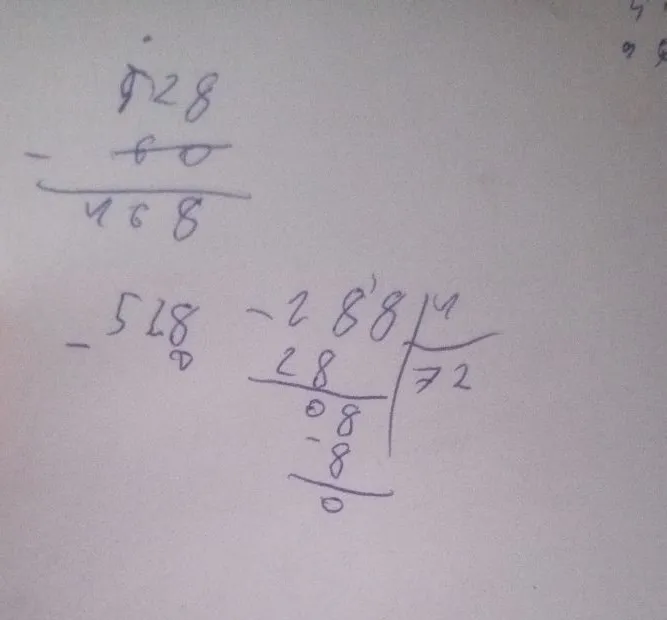 528
- 60
468
- 528
0
- 288 4
28 72
08
- 8
0